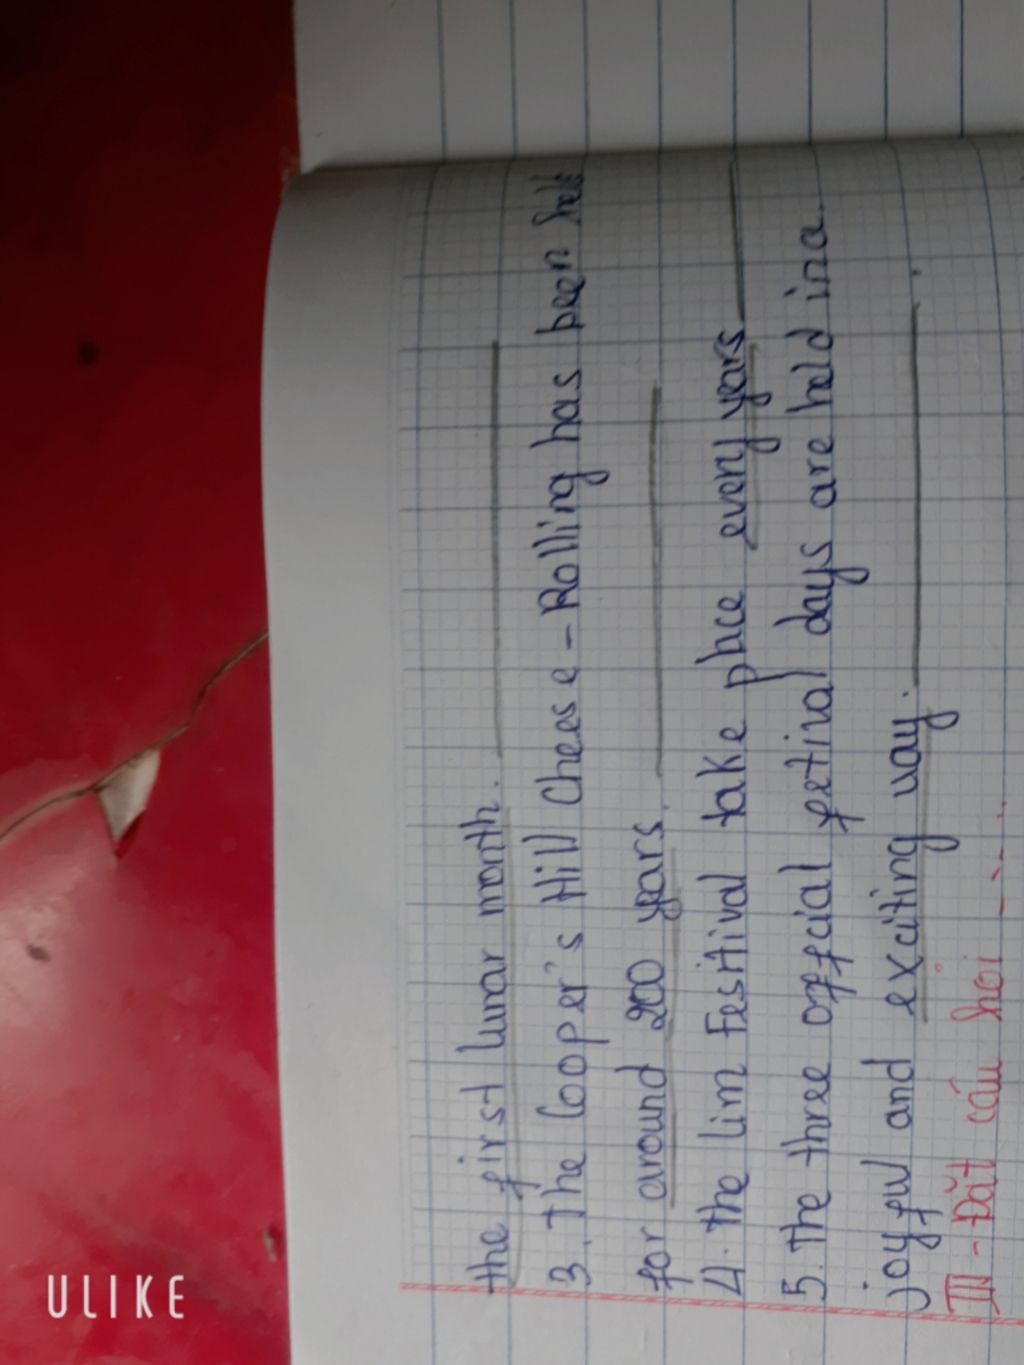 the first lunar month.
3. The Cooper's Hill Cheese - Rolling has been held
for around 200 years.
4. the lim Fesitival take place every years
5. The three offcial fetival days are held in a
joyful and exciting way.
III - Đặt câu hỏi ....
ULIKE